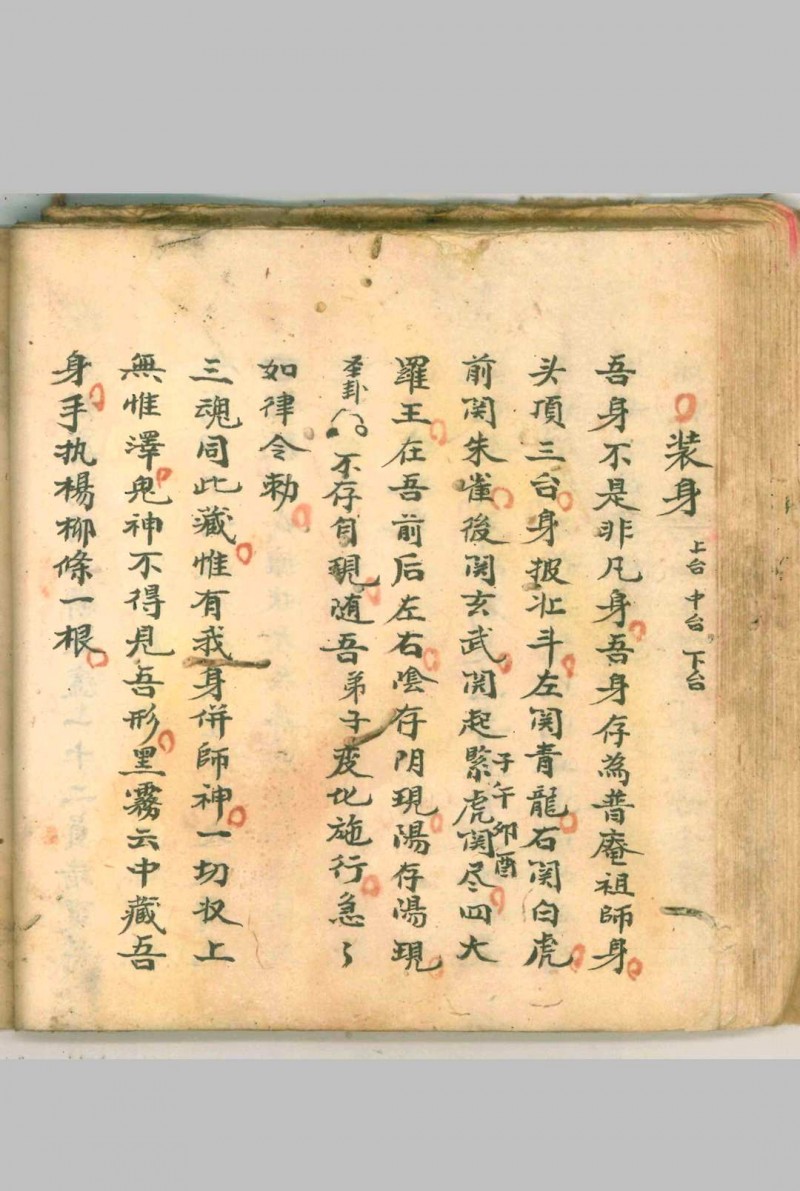 装身 上台 中台 下台
吾身不是非凡身吾身存為普庵祖師身
头頂三台身披北斗左関青龍右関白虎
前関朱雀後関玄武関起緊虎関尽四大
子午卯酉
羅王在吾前后左右陰存阴現陽存陽現
圣卦 不存自現随吾弟子変化施行急々
如律令勅
三魂同此藏惟有我身併師神一切收上
無惟澤鬼神不得見吾形黑霧云中藏吾
身手执楊柳條一根